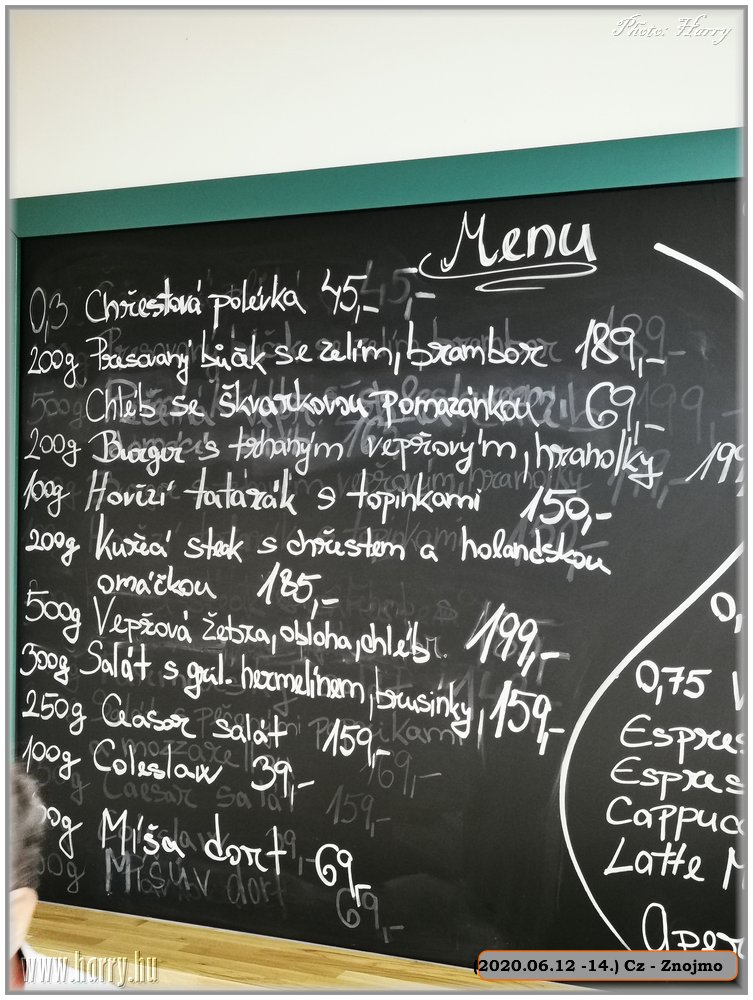 Photo: Harry
Menu
0,3 Chřestová polévka 45,-
200g Presovaný bůčák se zelím, brambor 189,-
Chléb se škvarkovou pomazánkou 69,-
200g Burger s trhaným vepřovým, hranolky 199
100g Hovězí tatarák s topinkami 150,-
200g Kuřecí steak s chřestem a holandskou
omáčkou 185,-
500g Vepřová žebra, obloha, chléb 199,-
300g Salát s gril. hermelínem, brusinky, 159,-
250g Ceasar salát 159,-
100g Coleslaw 39,-
Míša dort 69,-
0,
0,75
Espres
Espres
Cappuc
Latte M
Aper
www.harry.hu
(2020.06.12 -14.) Cz - Znojmo